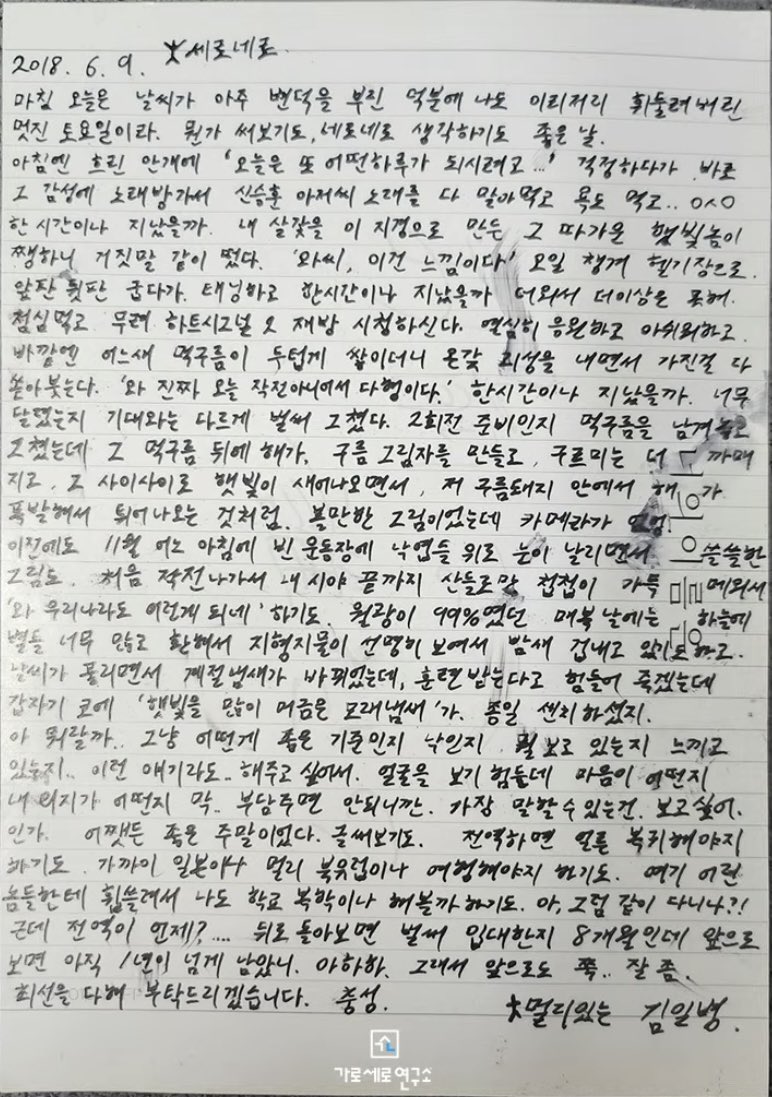 大세로네로.
2018. 6. 9.
마침 오늘은 날씨가 아주 변덕을 부린 덕분에 나도 이리저리 휘둘려버린
멋진 토요일이라. 뭔가 써보기도, 네로네로 생각하기도 좋은 날.
아침엔 흐린 안개에 '오늘은 또 어떤하루가 되시려고...' 걱정하다가 바로
그 감성에 노래방가서 신승훈 아저씨 노래를 다 말아먹고 욕도 먹고.. ㅇㅅㅇ
한시간이나 지났을까. 내 살갗을 이 지경으로 만든 그 따가운 햇빛놈이
쨍하니 거짓말 같이 떴다. '와씨, 이건 느낌이다' 오일 챙겨 헬기장으로.
앞판 뒷판 굽다가. 태닝하고 한시간이나 지났을까 더워서 더이상은 못해.
점심먹고 무려 하트시그널 2 재방 시청하신다. 열심히 응원하고 아쉬워하고.
바깥엔 어느새 먹구름이 두텁게 쌓이더니 온갖 괴성을 내면서 가진걸 다
쏟아붓는다. '와 진짜 오늘 작전아니어서 다행이다.' 한시간이나 지났을까. 너무
달렸는지 기대와는 다르게 벌써 그쳤다. 2회전 준비인지 먹구름을 남겨놓고
그쳤는데 그 먹구름 뒤에 해가, 구름 그림자를 만들고, 구르미는 더 까매
지고, 그 사이사이로 햇빛이 새어나오면서, 저 구름돼지 안에서 해가
폭발해서 튀어나오는 것처럼. 볼만한 그림이었는데 카메라가 없엉.
이전에도 11월 어느 아침에 빈 운동장에 낙엽들 위로 눈이 날리면서 쓸쓸한
그림도. 처음 작전나가서 내 시야 끝까지 산들로만 첩첩이 가득 메워서
'와 우리나라도 이런게 되네' 하기도. 월광이 99%였던 매복날에는 하늘에
별들 너무 많고 환해서 지형지물이 선명히 보여서 밤새 겁내고 있기도하고.
날씨가 풀리면서 계절냄새가 바뀌었는데, 훈련받는다고 힘들어 죽겠는데
갑자기 코에 '햇빛을 많이 머금은 모래냄새'가. 종일 센치하셨지.
아 뭐랄까.. 그냥 어떻게 좋은 기준인지 낙인지 뭘 보고 있는지 느끼고
있는지.. 이런 얘기라도.. 해주고 싶어서. 얼굴을 보기 힘든데 마음이 어떤지
내 의지가 어떤지 막.. 부담주면 안되니깐. 가장 말할수있는건. 보고싶어.
인가. 어쨋든 좋은 주말이었다. 글써보기도. 전역하면 얼른 복귀해야지
하기도. 가까이 일본이나 멀리 북유럽이나 여행해야지 하기도. 여기 어린
놈들한테 휩쓸려서 나도 학교 복학이나 해볼까 하기도. 아, 그럼 같이 다니나?!
근데 전역이 언제?.... 뒤로 돌아보면 벌써 입대한지 8개월인데 앞으로
보면 아직 1년이 넘게 남았니. 아하하. 그래서 앞으로도 쭉.. 잘 좀.
최선을 다해 부탁드리겠습니다. 충성.
大멀리있는 김일병.
가로세로연구소